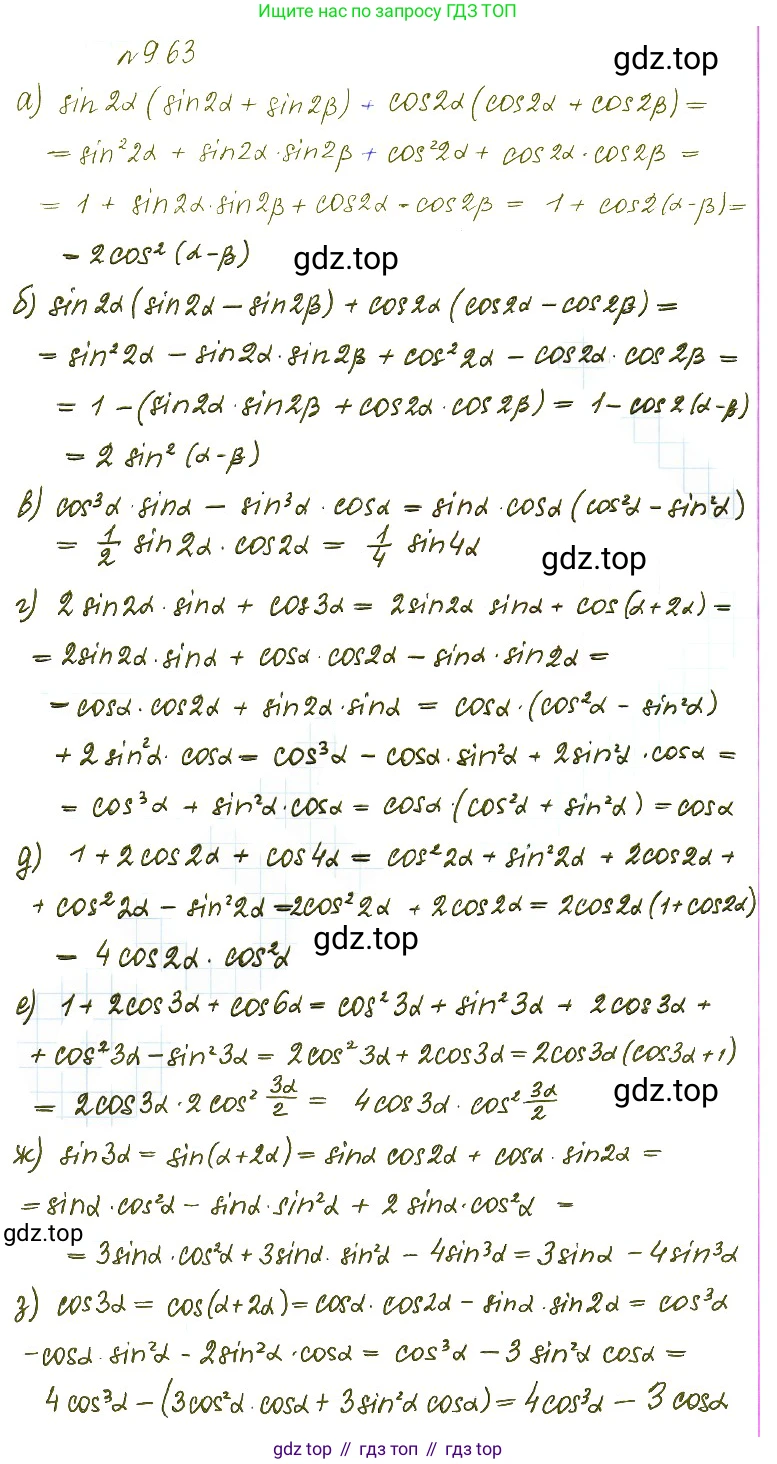 Ищите нас по запросу ГДЗ ТОП
№963
gdz.top
а) sin2α(sin2α + sin2β) + cos2α(cos2α + cos2β) =
= sin²2α + sin2α·sin2β + cos²2α + cos2α·cos2β =
= 1 + sin2α·sin2β + cos2α·cos2β = 1 + cos2(α-β) =
= 2cos²(α-β)
gdz.top
б) sin2α(sin2α - sin2β) + cos2α(cos2α - cos2β) =
= sin²2α - sin2α·sin2β + cos²2α - cos2α·cos2β =
= 1 - (sin2α·sin2β + cos2α·cos2β) = 1 - cos2(α-β)
= 2 sin²(α-β)
в) cos³α·sinα - sin³α·cosα = sinα·cosα(cos²α - sin²α)
= 1/2 sin2α·cos2α = 1/4 sin4α
gdz.top
г) 2sin2α·sinα + cos3α = 2sin2α sinα + cos(α+2α) =
= 2sin2α·sinα + cosα·cos2α - sinα·sin2α =
= cosα·cos2α + sin2α·sinα = cosα·(cos²α - sin²α)
+ 2sin²α·cosα = cos³α - cosα·sin²α + 2sin²α·cosα =
= cos³α + sin²α·cosα = cosα·(cos²α + sin²α) = cosα
д) 1 + 2cos2α + cos4α = cos²2α + sin²2α + 2cos2α +
+ cos²2α - sin²2α = 2cos²2α + 2cos2α = 2cos2α(1+cos2α)
= 4cos2α·cos²α
gdz.top
е) 1 + 2cos3α + cos6α = cos²3α + sin²3α + 2cos3α +
+ cos²3α - sin²3α = 2cos²3α + 2cos3α = 2cos3α(cos3α+1)
= 2cos3α·2cos² 3α/2 = 4cos3α·cos² 3α/2
gdz.top
ж) sin3α = sin(α+2α) = sinα cos2α + cosα·sin2α =
= sinα·cos²α - sinα·sin²α + 2sinα·cos²α =
gdz.top
= 3sinα·cos²α + 3sinα·sin²α - 4sin³α = 3sinα - 4sin³α
з) cos3α = cos(α+2α) = cosα·cos2α - sinα·sin2α = cos³α
- cosα·sin²α - 2sin²α·cosα = cos³α - 3sin²α cosα =
4cos³α - (3cos²α·cosα + 3sin²α cosα) = 4cos³α - 3cosα
gdz top // гдз топ // гдз top